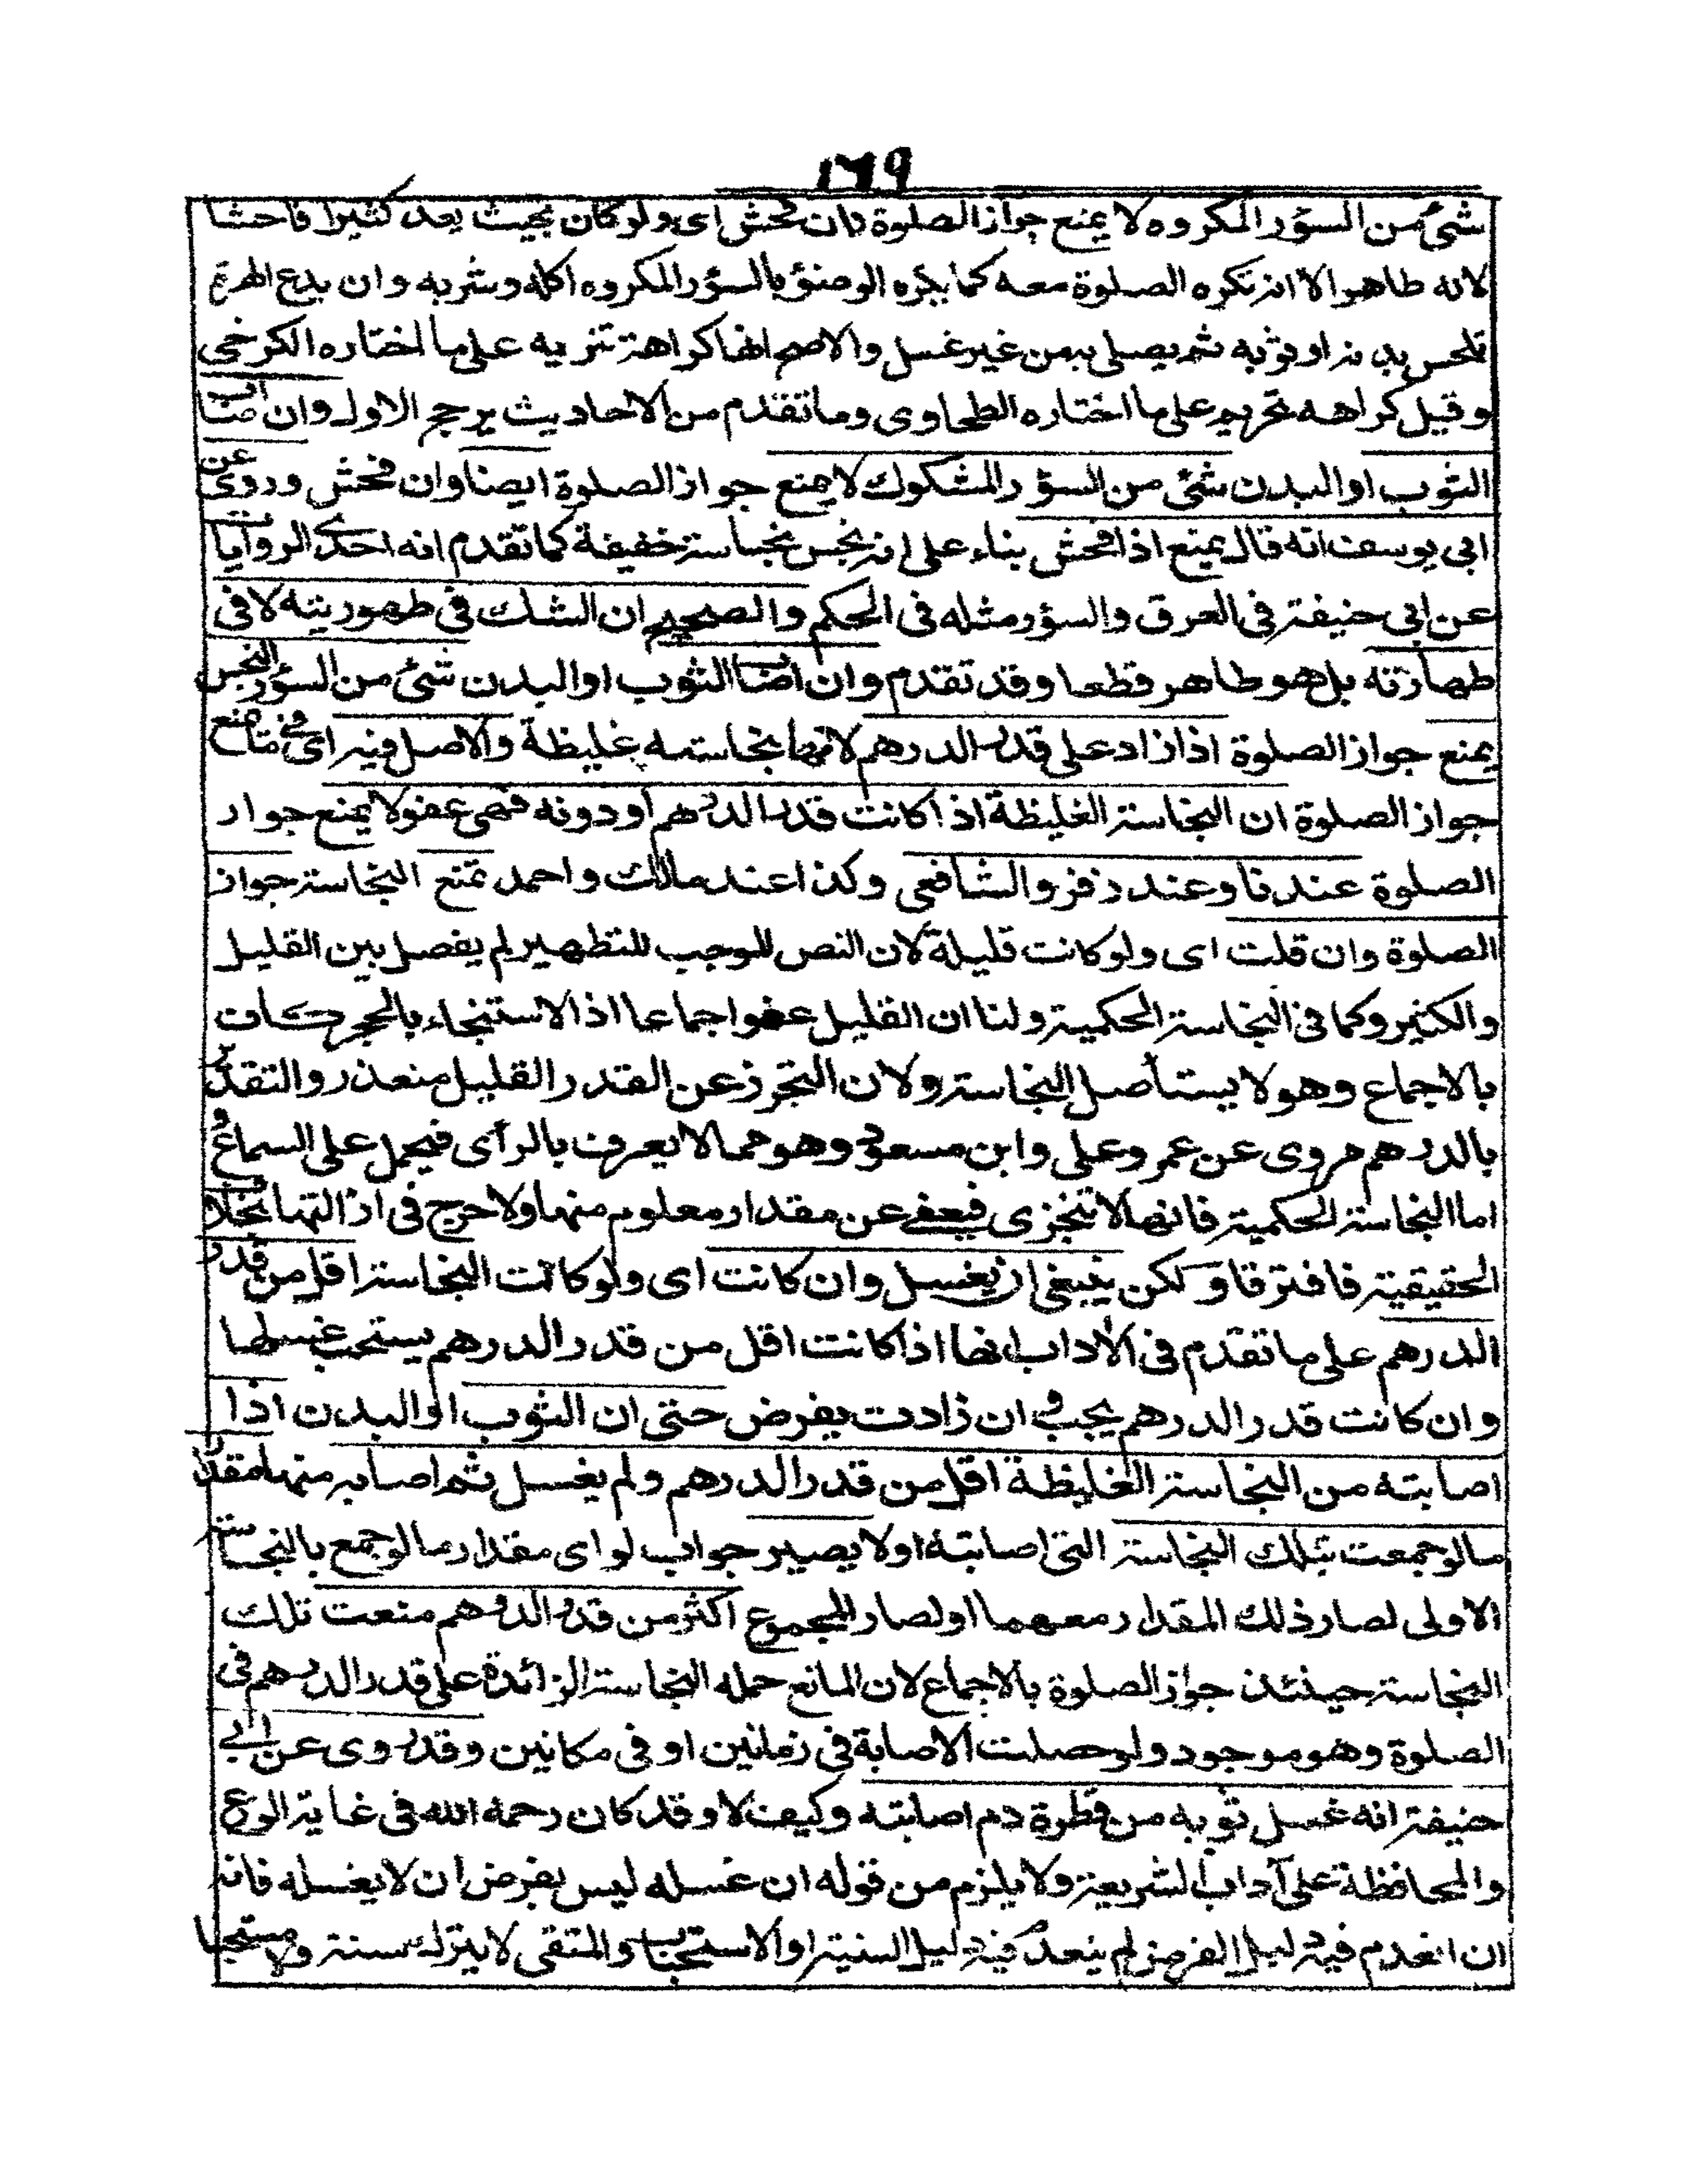 ١٦٩
شئ من السؤر المكروه لا يمنع جواز الصلوة وان فحش اى ولو كان بحيث يعد كثيرا فاحشا
لانه طاهر الا انه تكره الصلوة معه كما يكره الوضؤ بالسؤر المكروه اكله وشربه وان يدع الهرة
تلحس بدنه او ثوبه ثم يصلى به من غير غسل والاصح انها كراهة تنزيه على ما اختاره الكرخى
وقيل كراهة تحريم على ما اختاره الطحاوى وما تقدم من الاحاديث يرجح الاول وان اصاب
الثوب او البدن شئ من السؤر المشكوك لا يمنع جواز الصلوة ايضا وان فحش وروى عن
ابى يوسف انه قال يمنع اذا فحش بناء على انه نجس نجاسة خفيفة كما تقدم انه احدى الروايات
عن ابى حنيفة فى العرق والسؤر مثله فى الحكم والصحيح ان الشك فى طهوريته لا فى
طهارته بل هو طاهر قطعا وقد تقدم وان اصاب الثوب او البدن شئ من السؤر النجس
يمنع جواز الصلوة اذا زاد على قدر الدرهم لانها نجاسته غليظة والاصل فيه اى فى منع
جواز الصلوة ان النجاسة الغليظة اذا كانت قدر الدرهم او دونه فهى عفو لا يمنع جواز
الصلوة عندنا وعند زفر والشافعى وكذا عند مالك واحمد تمنع النجاسة جواز
الصلوة وان قلت اى ولو كانت قليلة لان النص الموجب للتطهير لم يفصل بين القليل
والكثير وكما فى النجاسة الحكمية ولنا ان القليل عفو اجماعا اذ الاستنجاء بالحجر كاف
بالاجماع وهو لا يستأصل النجاسة ولان التحرز عن القدر القليل متعذر والتقدير
بالدرهم مروى عن عمر وعلى وابن مسعود وهو مما لا يعرف بالرأى فيحمل على السماع و
اما النجاسة الحكمية فانها لا تتجزى فيعفى عن مقدار معلوم منها ولا حرج فى ازالتها بخلاف
الحقيقية فافترقا ولكن ينبغى ان يغسل وان كانت اى ولو كانت النجاسة اقل من قدر
الدرهم على ما تقدم فى الآداب انها اذا كانت اقل من قدر الدرهم يستحب غسلها
وان كانت قدر الدرهم يجب و ان زادت يفرض حتى ان الثوب او البدن اذا
اصابته من النجاسة الغليظة اقل من قدر الدرهم ولم يغسل ثم اصابه منها مقدار
ما لو جمعت بتلك النجاسة التى اصابته اولا يصير جواب لو اى مقدار ما لو جمع بالنجاسة
الاولى لصار ذلك المقدار معهما او لصار المجموع اكثر من قدر الدرهم منعت تلك
النجاسة حينئذ جواز الصلوة بالاجماع لان المانع حمله النجاسة الزائدة على قدر الدرهم فى
الصلوة وهو موجود ولو حصلت الاصابة فى زمانين او فى مكانين وقد روى عن ابى
حنيفة انه غسل ثوبه من قطرة دم اصابته وكيف لا وقد كان رحمه الله فى غاية الورع
والمحافظة على آداب الشريعة ولا يلزم من قوله ان غسله ليس بفرض ان لا يغسله فانه
ان انعدم فيه دليل الفرض لم ينعدم فيه دليل السنية او الاستحباب والمتقى لا يترك سنة ولا مستحبا